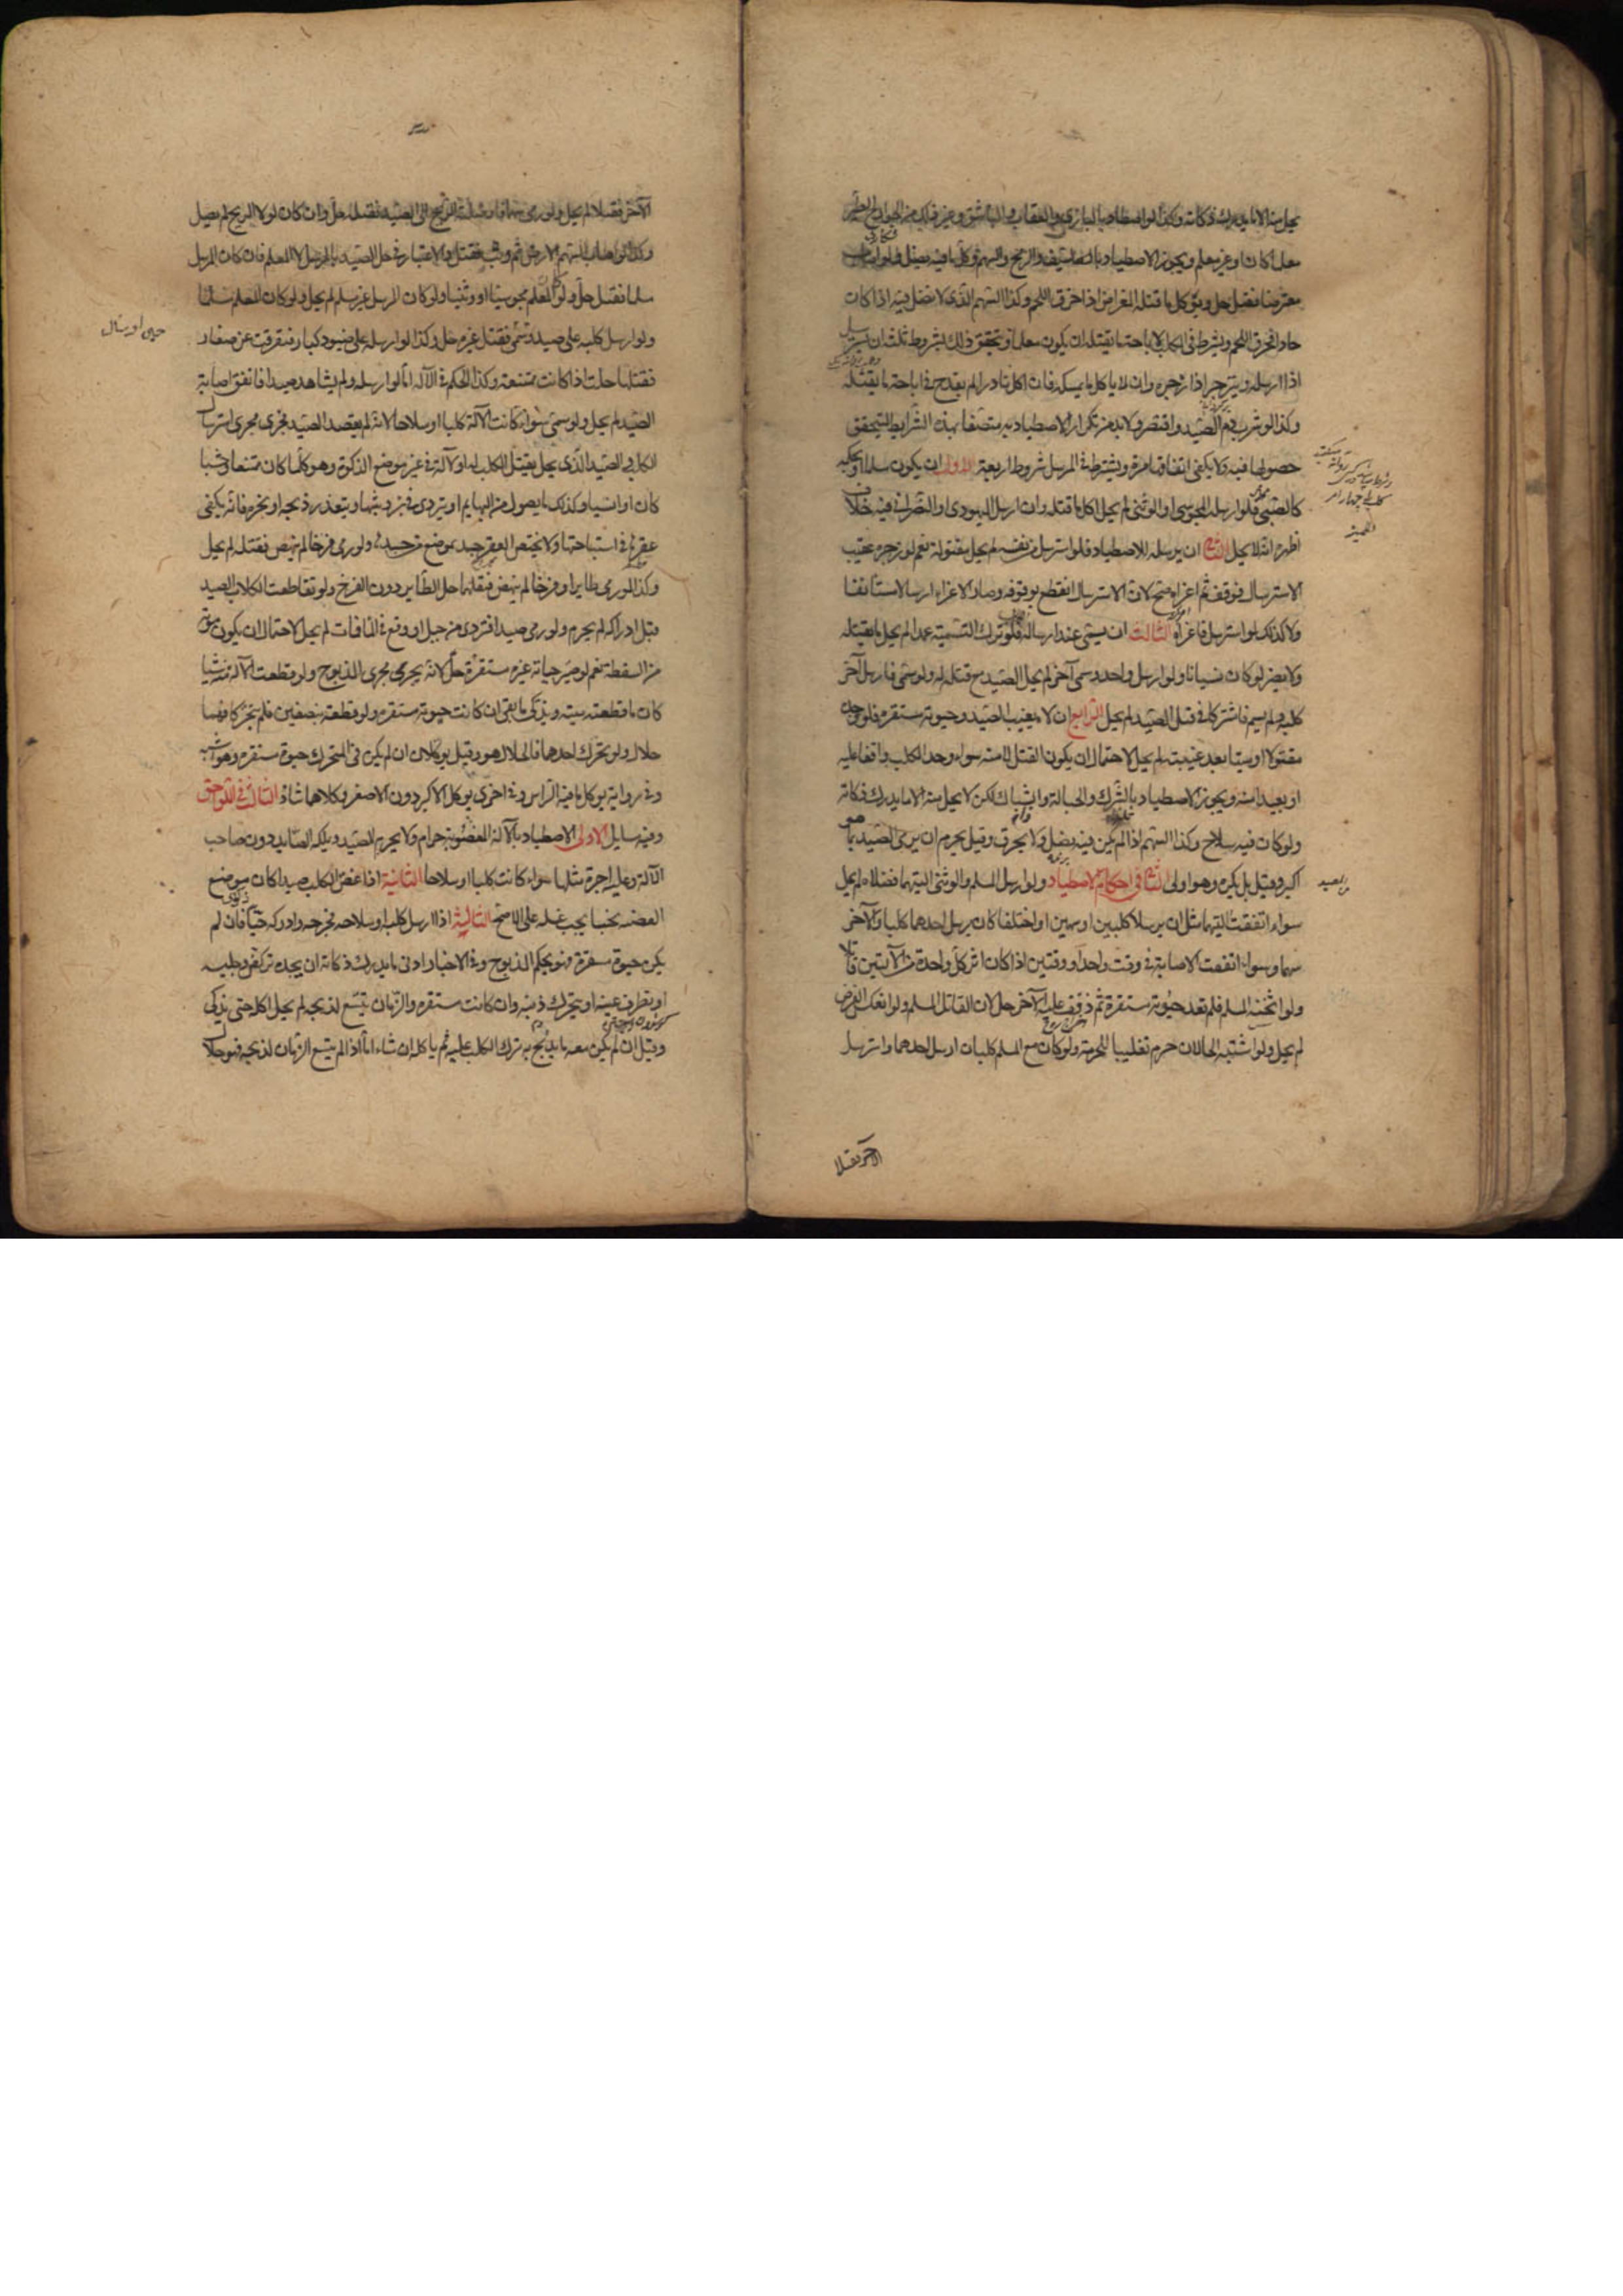 يحل منه الا ما يدرك ذكاته وكذا لو اصطاد بالبازي والعقاب والباشق وغير ذلك من الجوارح الطير
معلما كان او غير معلم ويجوز الاصطياد بالسيف والرمح والسهم وكل ما فيه نصل فلو اصاب
معترضا فقتل حل ويؤكل ما قتله المعراض اذا خرق اللحم وكذا السهم الذي لا نصل فيه اذا كان
حادا فخرق اللحم ويشترط في الكلب لاباحة ما يقتله ان يكون معلما ويتحقق ذلك بشروط ثلثة ان يسترسل
اذا ارسله وينزجر اذا زجره وان لا ياكل ما يمسكه فان اكل نادرا لم يقدح في اباحة ما يقتله
وكذا لو شرب دم الصيد واقتصر ولا بد من تكرار الاصطياد به متصفا بهذه الشرايط ليتحقق
حصولها فيه ولا يكفي اتفاقها مرة ويشترط في المرسل شروط اربعة الاول ان يكون مسلما او بحكمه
كالصبي فلو ارسله المجوسي او الوثني لم يحل اكل ما قتله وان ارسل اليهودي او النصراني فيه خلاف
اظهره انه لا يحل الثاني ان يرسله للاصطياد فلو استرسل من نفسه لم يحل مقتوله نعم لو زجره عقيب
الاسترسال فوقف ثم اغراه صح لان الاسترسال انقطع بوقوفه وصار الاغراء ارسالا مستانفا
ولا كذلك لو استرسل فاغراه الثالث ان يسمي عند ارساله فلو ترك التسمية عمدا لم يحل ما يقتله
ولا يضر لو كان نسيانا ولو ارسل واحد وسمى آخر لم يحل الصيد مع قتله له ولو سمى فارسل آخر
كلبه ولم يسم فاشتركا في قتل الصيد لم يحل الرابع ان لا يغيب الصيد وحيوته مستقرة فلو وجد
مقتولا او ميتا بعد غيبته لم يحل لاحتمال ان يكون القتل لا منه سواء وجد الكلب واقفا عليه
او بعيدا منه ويجوز الاصطياد بالشرك والحبالة والشباك لكن لا يحل منه الا ما يدرك ذكاته
ولو كان فيه سلاح وكذا السهم اذا لم يكن فيه نصل ولا يخرق وقيل يحرم ان يرمى الصيد بما هو
اكبر وقيل بل يكره وهو اولى الثاني في احكام الاصطياد ولو ارسل المسلم والوثني آلتيهما فقتلاه لم يحل
سواء اتفقت آلتهما مثل ان يرسلا كلبين او سهمين او اختلفا كان يرسل احدهما كلبا والآخر
سهما وسواء اتفقت الاصابة في وقت واحد او وقتين اذا كان اثر كل واحدة من الآلتين قاتلا
ولو اثخنه المسلم فلم تعد حيوته مستقرة ثم ذفف عليه الآخر حل لان القاتل المسلم ولو انعكس الفرض
لم يحل ولو اشتبه الحالان حرم تغليبا للحرمة ولو كان مع المسلم كلبان ارسل احدهما واسترسل
من الصيد
الآخر فقتلا
الآخر فقتلا لم يحل ولو رمى سهما فاوصلته الريح الى الصيد فقتله حل وان كان لولا الريح لم يصل
وكذا لو اصاب السهم الارض ثم وثب فقتل والاعتبار في حل الصيد بالمرسل لا المعلم فان كان المرسل
مسلما فقتل حل ولو كان المعلم مجوسيا او وثنيا ولو كان المرسل غير مسلم لم يحل ولو كان المعلم مسلما
ولو ارسل كلبه على صيد وسمى فقتل غيره حل وكذا لو ارسله على صيود كبار فتفرقت عن صغار
فقتلها حلت اذا كانت ممتنعة وكذا الحكم في الآلة اما لو ارسله ولم يشاهد صيدا فاتفق اصابة
الصيد لم يحل ولو سمى سواء كانت الآلة كلبا او سلاحا لانه لم يقصد الصيد فجرى مجرى استرسال
الكلب والصيد الذي يحل بقتل الكلب له او الآلة في غير موضع الذكوة وهو كلما كان ممتنعا وحشيا
كان او انسيا وكذلك ما يصول من البهايم او يتردى في بئر وشبهها ويتعذر ذبحه او نحره فانه يكفي
عقرها في استباحتها ولا يختص العقر حينئذ بموضع من جسده ولو رمى فرخا لم ينهض فقتله لم يحل
وكذا لو رمى طايرا وفرخا لم ينهض فقتلهما حل الطاير دون الفرخ ولو تقاطعت الكلاب الصيد
قبل ادراكه لم يحرم ولو رمى صيدا فتردى من جبل او وقع في الماء فمات لم يحل لاحتمال ان يكون موته
من السقطة نعم لو صير حياته غير مستقرة حل لانه يجري مجرى المذبوح ولو قطعت الآلة منه شيئا
كان ما قطعته ميتة ويذكى ما بقي ان كانت حيوته مستقرة ولو قطعته بنصفين فلم يتحركا فهما
حلال ولو تحرك احدهما فالحلال هو وقيل يؤكلان ان لم يكن في المتحرك حيوة مستقرة وهو اشبه
وفي رواية يؤكل ما فيه الراس وفي اخرى يؤكل الاكبر دون الاصغر وكلاهما شاذ الثالث في اللواحق
وفيه مسايل الاولى الاصطياد بالآلة المغصوبة حرام ولا يحرم الصيد ويملكه الصايد دون صاحب
الآلة وعليه اجرة مثلها سواء كانت كلبا او سلاحا الثانية اذا عض الكلب صيدا كان موضع
العضة نجسا يجب غسله على الاصح الثالثة اذا ارسل كلبه او سلاحه فجرحه وادركه حيا فان لم
يكن حيوة مستقرة فهو بحكم المذبوح وفي الاخبار ادنى ما يدرك ذكاته ان يجده تركض رجليه
او تطرف عينه او يتحرك ذنبه وان كانت مستقرة والزمان يتسع لذبحه لم يحل اكله حتى يذكى
وقيل ان لم يكن معه ما يذبح به ترك الكلب عليه ثم ياكله ان شاء اما اذا لم يتسع الزمان لذبحه فهو حلال